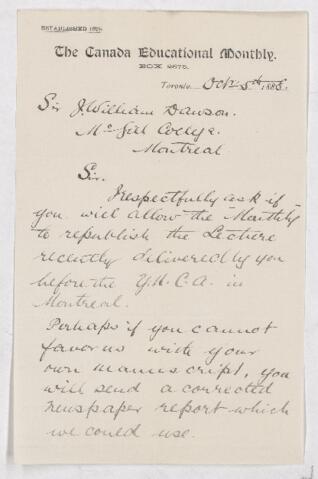 ESTABLISHED 1879.
The Canada Educational Monthly.
BOX 2675.
Toronto, Oct. 5th 1888.
Sir J. William Dawson.
McGill College.
Montreal
Sir.
I respectfully ask if
you will allow the Monthly
to republish the Lecture
recently delivered by you
before the Y.M.C.A. in
Montreal.
Perhaps if you cannot
favor us with your
own manuscript, you
will send a corrected
newspaper report which
we could use.